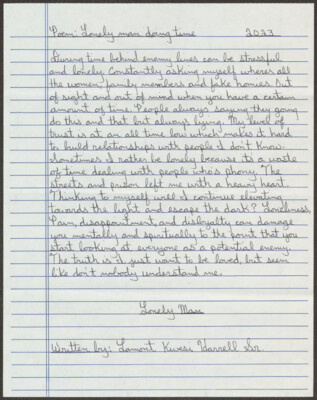 Poem: Lonely man doing time 2023
During time behind enemy lines can be stressful
and lonely. Constantly asking myself wheres all
the women, family members and fake homies. Out
of sight and out of mind when you have a certain
amount of time. People always saying they gon'
do this and that but always lying. My level of
trust is at an all time low which makes it hard
to build relationships with people I don't know.
Sometimes I rather be lonely because its a waste
of time dealing with people who's phony. The
streets and prison left me with a heavy heart.
Thinking to myself will I continue elevating
towards the light and escape the dark? Loneliness,
Pain, disappointment, and disloyalty can damage
you mentally and spiritually to the point that you
start looking at everyone as a potential enemy.
The truth is I just want to be loved, but seem
like don't nobody understand me.
Lonely Man
Written by: Lamont Kwesi Harrell Sr.